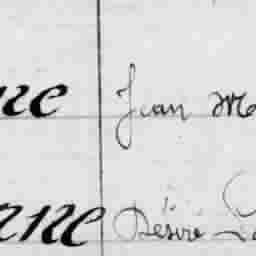 ne Jean Ma
rne Désiré